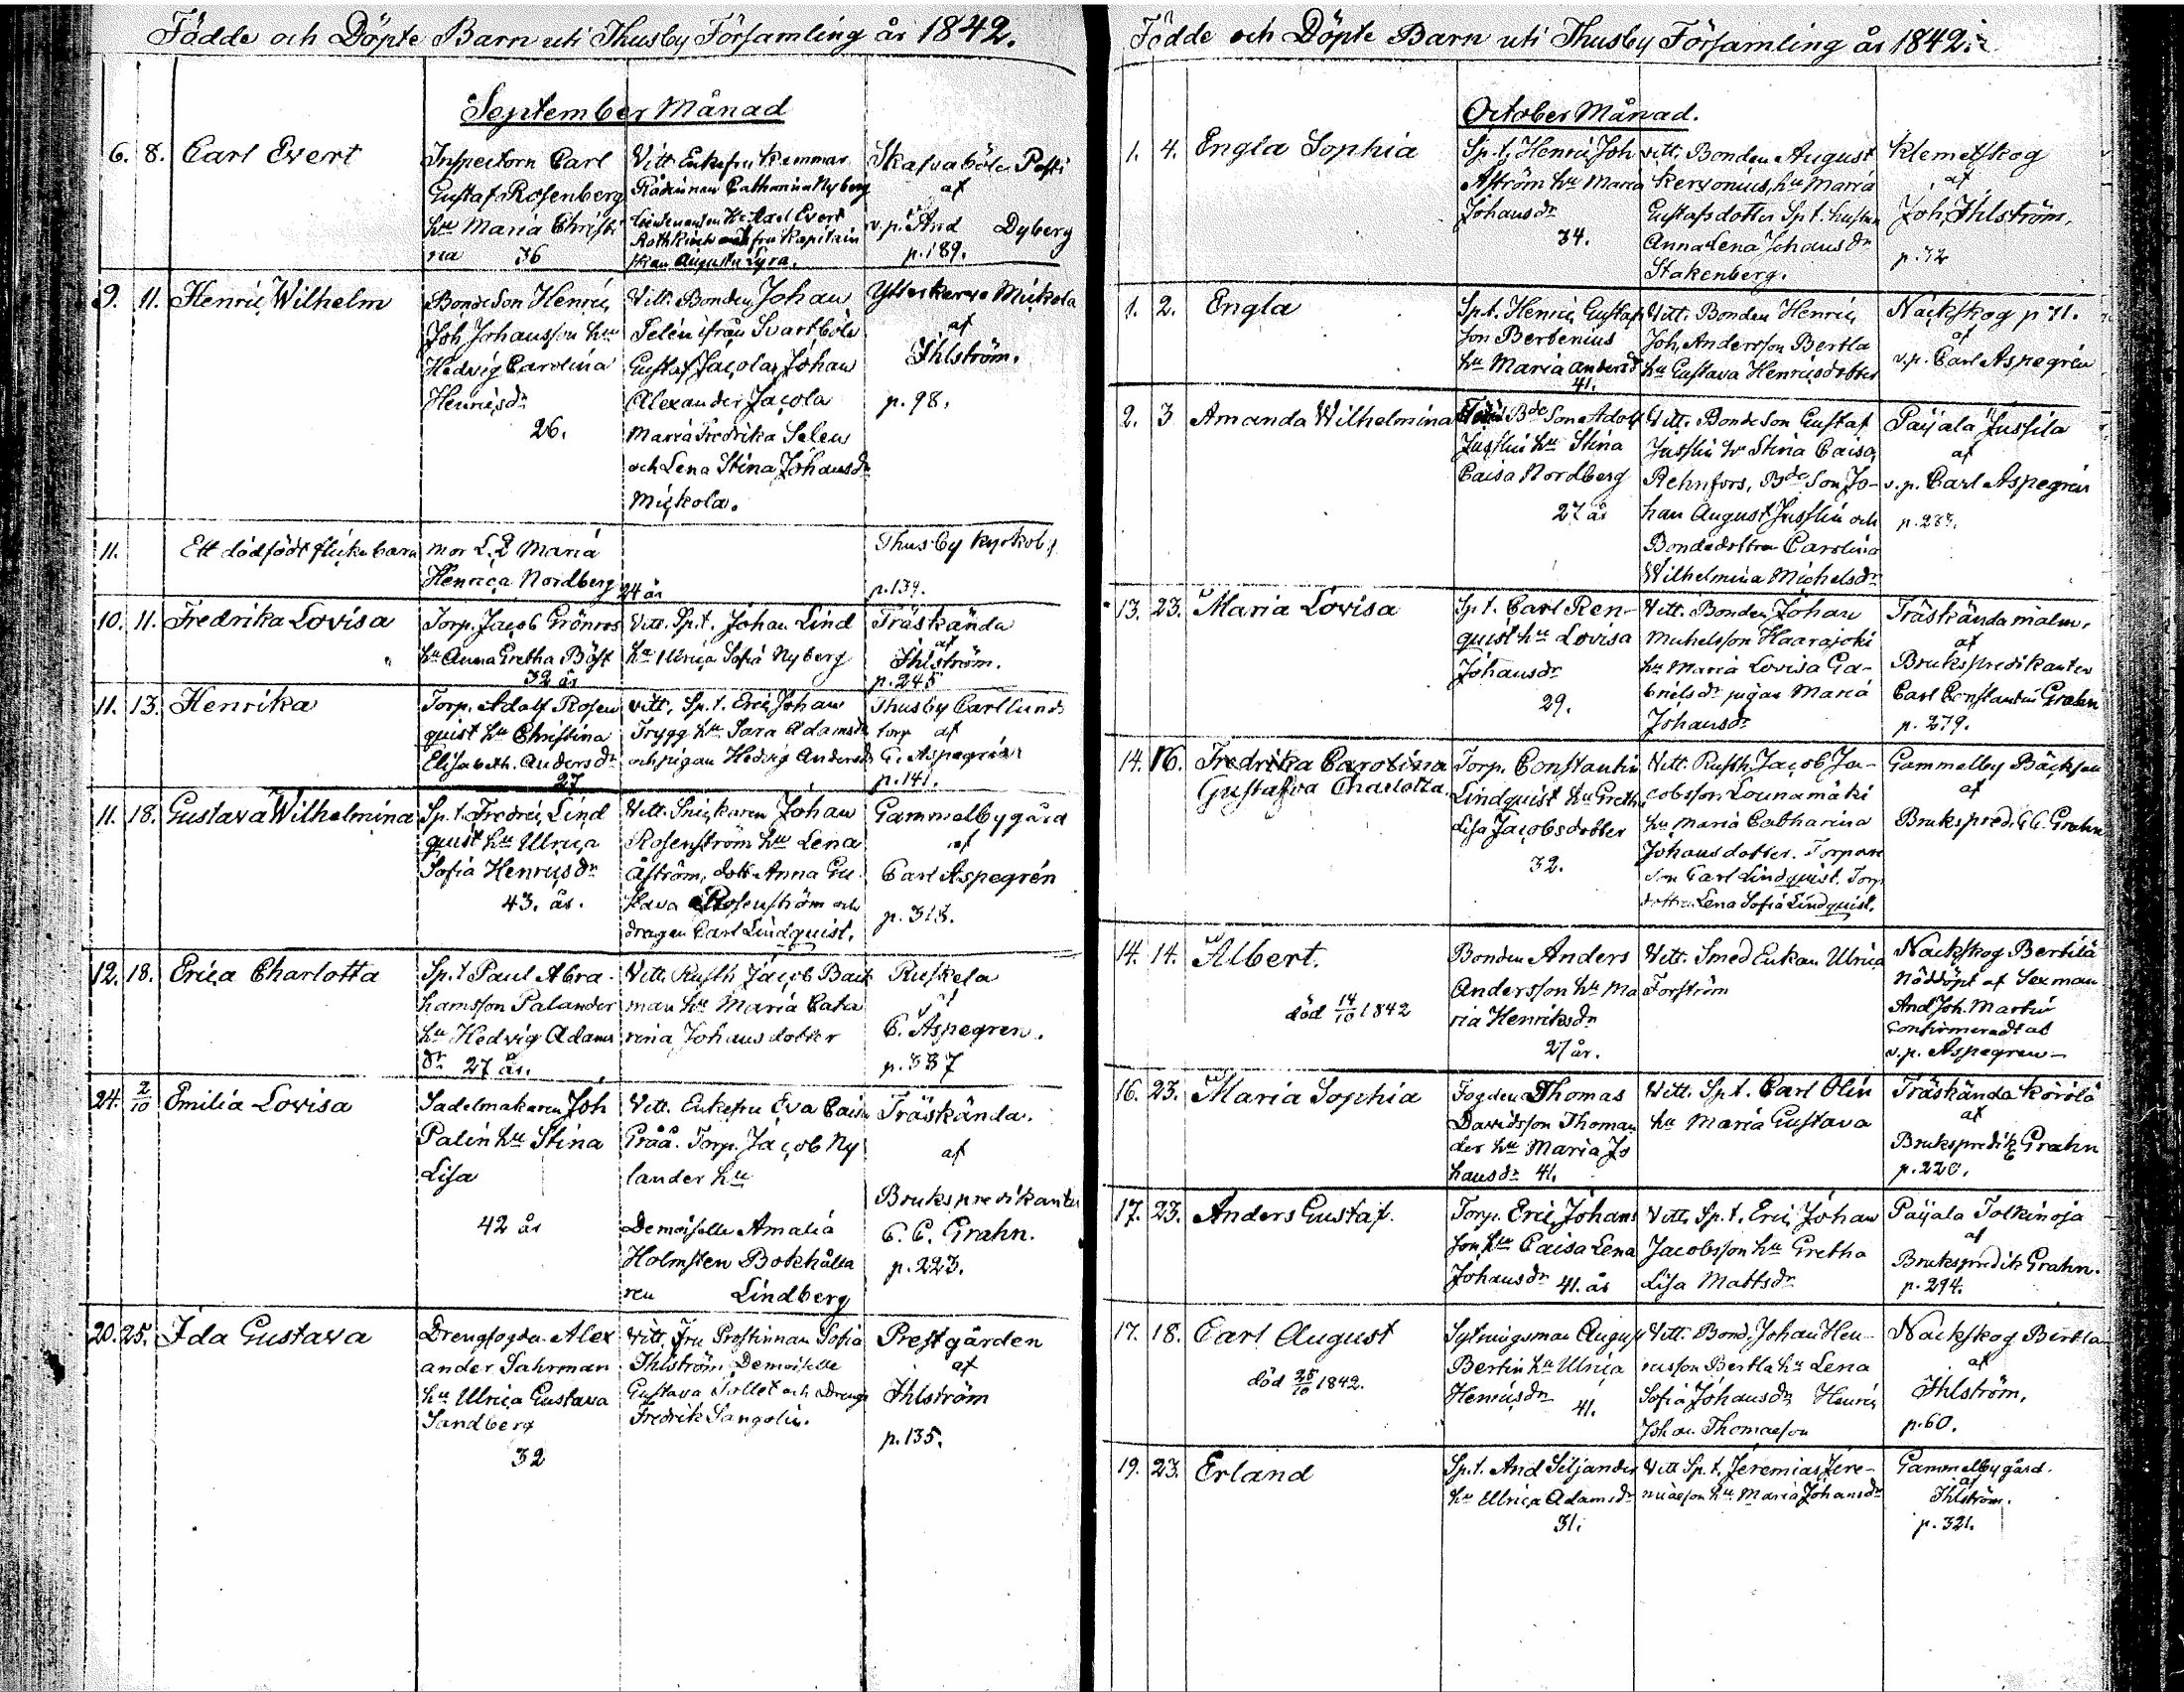 Födde och Döpte Barn uti Thusby Församling år 1842.
September Månad
6. 8. Carl Evert
Inspectorn Carl
Gustaf Rosenberg
hu Maria Christi
na 36
Vitt. Enkefru Kammar
Rådinnan Catharina Nyberg
Axel Evert
Rothkirch och fru Kapitain
skan Augusta Lyra.
Skafvaböle
af
v.p. And Dyberg
p. 189.
9. 11. Henric Wilhelm
Bondeson Henric
Joh Johansson hu
Hedvig Carolina
Henricsdr
26.
Vitt. Bonden Johan
Selen ifrån Svartböle
Gustaf Jacola, Johan
Alexander Jacola
Maria Fredrika Selen
och Lena Stina Johansdr
Mickola.
Ytterkervo Mickola
af
Ihlström.
p. 98.
11. Ett dödfödt flickebarn
mor L.Q Maria
Henrica Nordberg
24 år
Thusby kyrkoby
p. 139.
10. 11. Fredrika Lovisa
Torp. Jacob Grönroos
hu Anna Gretha Böst
32 år
Vitt. Sp.t. Johan Lind
hu Ulrica Sofia Nyberg
Träskända
af
Ihlström.
p. 245
11. 13. Henrika
Torp. Adolf Rosen
quist hu Christina
Elisabeth. Andersdr
27
Vitt. Sp.t. Eric Johan
Trygg hu Sara Adamsdr
och pigan Hedvig Andersdr
Thusby Carllunds
torp af
C. Aspegrén
p. 141.
11. 18. Gustava Wilhelmina
Sp.t. Fredric Lind
quist hu Ulrica
Sofia Henricsdr
43. år.
Vitt. Snickaren Johan
Rosenström hu Lena
Åström, dott Anna Gu
stava Rosenström och
drengen Carl Lindquist.
Gammelby gård
af
Carl Aspegrén
p. 313.
12. 18. Erica Charlotta
Sp.t Paul Abra-
hamsson Palander
hu Hedvig Adams
dr 27 år.
Vitt. Rusth Jacob Back
man hu Maria Cata
rina Johansdotter
Ruskela
af
C. Aspegren.
p. 337
24. 2/10 Emilia Lovisa
Sadelmakaren Joh
Palin hu Stina
Lisa
42 år
Vitt. Enkefru Eva Caisa
Gråå. Torp. Jacob Ny
lander hu
Demoiselle Amalia
Holmsten Bokhålla
ren Lindberg
Träskända.
af
Brukspredikanten
C. C. Grahn.
p. 223.
20. 25. Ida Gustava
Drengfogden Alex
ander Sahrman
hu Ulrica Gustava
Sandberg
32
Vitt. Fru Prostinnan Sofia
Ihlström Demoiselle
Gustava Sollet och Dreng
Fredrik Sangolin.
Prestgården
af
Ihlström
p. 135.
Födde och Döpte Barn uti Thusby Församling år 1842.
October Månad.
1. 4. Engla Sophia
Sp.t. Henric Joh
Åström hu Maria
Johansdr
34.
Vitt. Bonden August
Kervonius, hu Maria
Gustafsdotter Sp.t. hustru
Anna Lena Johansdr
Stakenberg.
Klemetskog
af
Joh. Ihlström,
p. 32
1. 2. Engla
Sp.t. Henric Gustaf
son Bertenius
hu Maria Andersdr
41.
Vitt. Bonden Henric
Joh. Andersson Bertla
hu Gustava Henricsdotter
Nackskog p 71.
af
v.p. Carl Aspegrén
2. 3 Amanda Wilhelmina
Bde Son Adolf
Jusslin hu Stina
Caisa Nordberg
27 år
Vitt. Bondeson Gustaf
Jusslin hu Stina Caisa
Rehnfors, Bde Son Jo-
han August Jusslin och
Bondedottren Carolina
Wilhelmina Michelsdr
Paijala Jussila
af
v.p. Carl Aspegrén
p. 283.
13. 23. Maria Lovisa
Sp.t. Carl Ren-
quist hu Lovisa
Johansdr
29.
Vitt. Bonden Johan
Michelsson Haarajoki
hu Maria Lovisa Ga-
brielsdr pigan Maria
Johansdr
Träskända malm.
af
Brukspredikanten
Carl Constantin Grahn
p. 279.
14. 16. Fredrika Carolina
Gustafva Charlotta.
Torp. Constantin
Lindquist hu Greth
Lisa Jacobsdotter
32.
Vitt. Rusth. Jacob Ja-
cobsson Lounamäki
hu Maria Catharina
Johansdotter. Torpare
son Carl Lindquist. Torp
dottren Lena Sofia Lindquist.
Gammelby Bäckjan
af
Brukspred. C C. Grahn
14. 14. Albert.
död 14/10 1842
Bonden Anders
Andersson hu Ma
ria Henriksdr
27 år.
Vitt. Smed Enkan Ulrica
Forström
Nackskog Bertilä
Nöddöpt af Sexman
And Joh. Martin
Confirmeradt af
v.p. Aspegren
16. 23. Maria Sophia
Fogden Thomas
Davidsson Thoman
der hu Maria Jo
hansdr 41.
Vitt. Sp.t. Carl Olin
hu Maria Gustava
Träskända Körölä
af
Brukspredik Grahn
p. 220.
17. 23. Anders Gustaf.
Torp. Eric Johans
son hu Caisa Lena
Johansdr 41. år
Vitt. Sp.t. Eric Johan
Jacobsson hu Gretha
Lisa Mattsdr
Paijala Tolkinoja
af
Brukspredik Grahn.
p. 294.
17. 18. Carl August
död 25/10 1842.
Sytningsman August
Bertin hu Ulrica
Henricsdr 41.
Vitt. Bond. Johan Hen-
ricsson Bertla hu Lena
Sofia Johansdr Henric
Johan Thomasson
Nackskog Bertla
af
Ihlström,
p. 60.
19. 23. Erland
Sp.t. And Siljander
hu Ulrica Adamsdr
31.
Vitt Sp.t. Jeremias Jere-
miasson hu Maria Johansdr
Gammelby gård.
af
Ihlström.
p. 321.